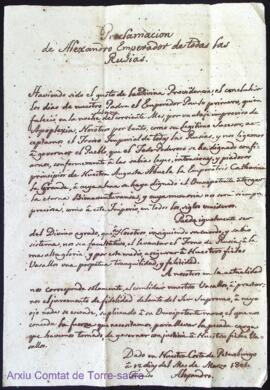 Proclamacion
de Alexandro Emperador de todas las
Rusias.
Haviendo sido el gusto de la Divina Providencia, el concluhir
los dias de nuestro Padre el Emperador Paulo primero, quien
falleció en la noche del corriente Mes, por un ataque improviso de
Apoplexia, Nosotros por tanto, como su Legitimo Succesor, ac-
ceptamos el Trono Imperial de todas las Rusias, y nos ligamos
à governar el Pueblo, que el Todo Poderoso se ha dignado confi-
arnos, conformemente à las sabias Leyes, intenciones, y
principios de Nuestra Augusta Abuela la Emperatriz Catharina
la Grande, à cuya alma se haya dignado el Omnipotente otorgar
la eterna Bienaventuranza, y cuya memoria, nos será siempre
preciosa, como à este Imperio, en todos los siglos venideros.
igualmente ser
del Divino agrado, que Nosotros siguiendo su
sistema, nos sea facultativo, el levantar el Trono de Rusia, à la
mas alta gloria, y por este modo, à nuestros fieles
Vasallos una perpetua tranquilidad y felicidad.
A nosotros en la actualidad
nos corresponde solamente, el combidar nuestros Vasallos, à prestar-
nos el juramento de fidelidad delante del Ser Supremo, à cuyo
ojo nada se esconde, suplicando à su Omnipotente mano, el que nos
conceda la fuerza que necesitamos para llevar la pesada carga
que havemos tomado, de governar en justicia à Nuestros fieles Va-
sallos.
Dado en Nuestra Corte de Petersburgo
à 12 dias del Mes de Marzo 1801.
Alexandro.
Arxiu Comtat de Torre-saura